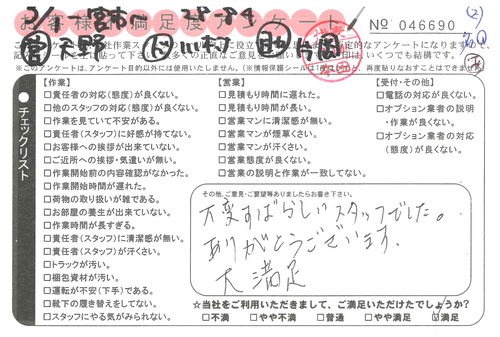 お客様満足度アンケート
No 046690
※このアンケートは、アンケート目的以外には使用いたしません。
チェックリスト
【作業】
□責任者の対応(態度)が良くない。
□他のスタッフの対応(態度)が良くない。
□作業を見ていて不安がある。
□責任者(スタッフ)に好感が持てない。
□お客様への挨拶が出来ていない。
□ご近所への挨拶・気遣いが無い。
□作業開始前の内容確認がなかった。
□作業開始時間が遅れた。
□荷物の取り扱いが雑である。
□お部屋の養生が出来ていない。
□作業時間が長すぎる。
□責任者(スタッフ)に清潔感が無い。
□責任者(スタッフ)が汗くさい。
□トラックが汚い。
□梱包資材が汚い。
□運転が不安(下手)である。
□靴下の履き替えをしてない。
□スタッフにやる気がみられない。
【営業】
□見積もり時間に遅れた。
□見積もり時間が長い。
□営業マンに清潔感が無い。
□営業マンが煙草くさい。
□営業マンが汗くさい。
□営業態度が良くない。
□営業の説明と作業が一致してない。
【受付・その他】
□電話の対応が良くない。
□オプション業者の説明
・作業が良くない。
□オプション業者の対応
(態度)が良くない。
その他、ご意見・ご要望等ありましたらお書き下さい。
大変すばらしいスタッフでした。
ありがとうございます。
大満足
☆当社をご利用いただきまして、ご満足いただけたでしょうか?
□不満 □やや不満 □普通 □やや満足 ☑満足